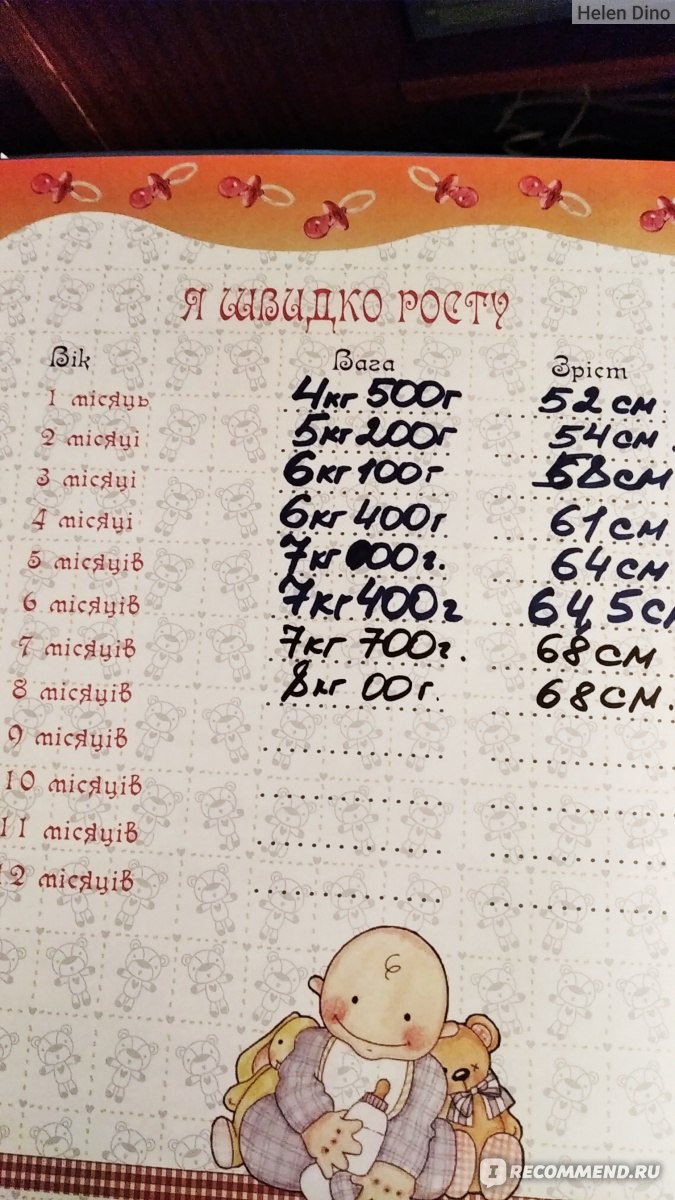 Helen Dino
Я ШВИДКО РОСТУ
Вік Вага Зріст
1 місяць 4кг 500г 52 см.
2 місяці 5кг 200г 54 см.
3 місяці 6кг 100г 58 см
4 місяці 6кг 400г 61 см
5 місяців 7кг 000г. 64 см
6 місяців 7кг 400г 64,5 см
7 місяців 7кг 700г. 68 см
8 місяців 8кг 00г. 68 см.
9 місяців
10 місяців
11 місяців
12 місяців
IRECOMMEND.RU